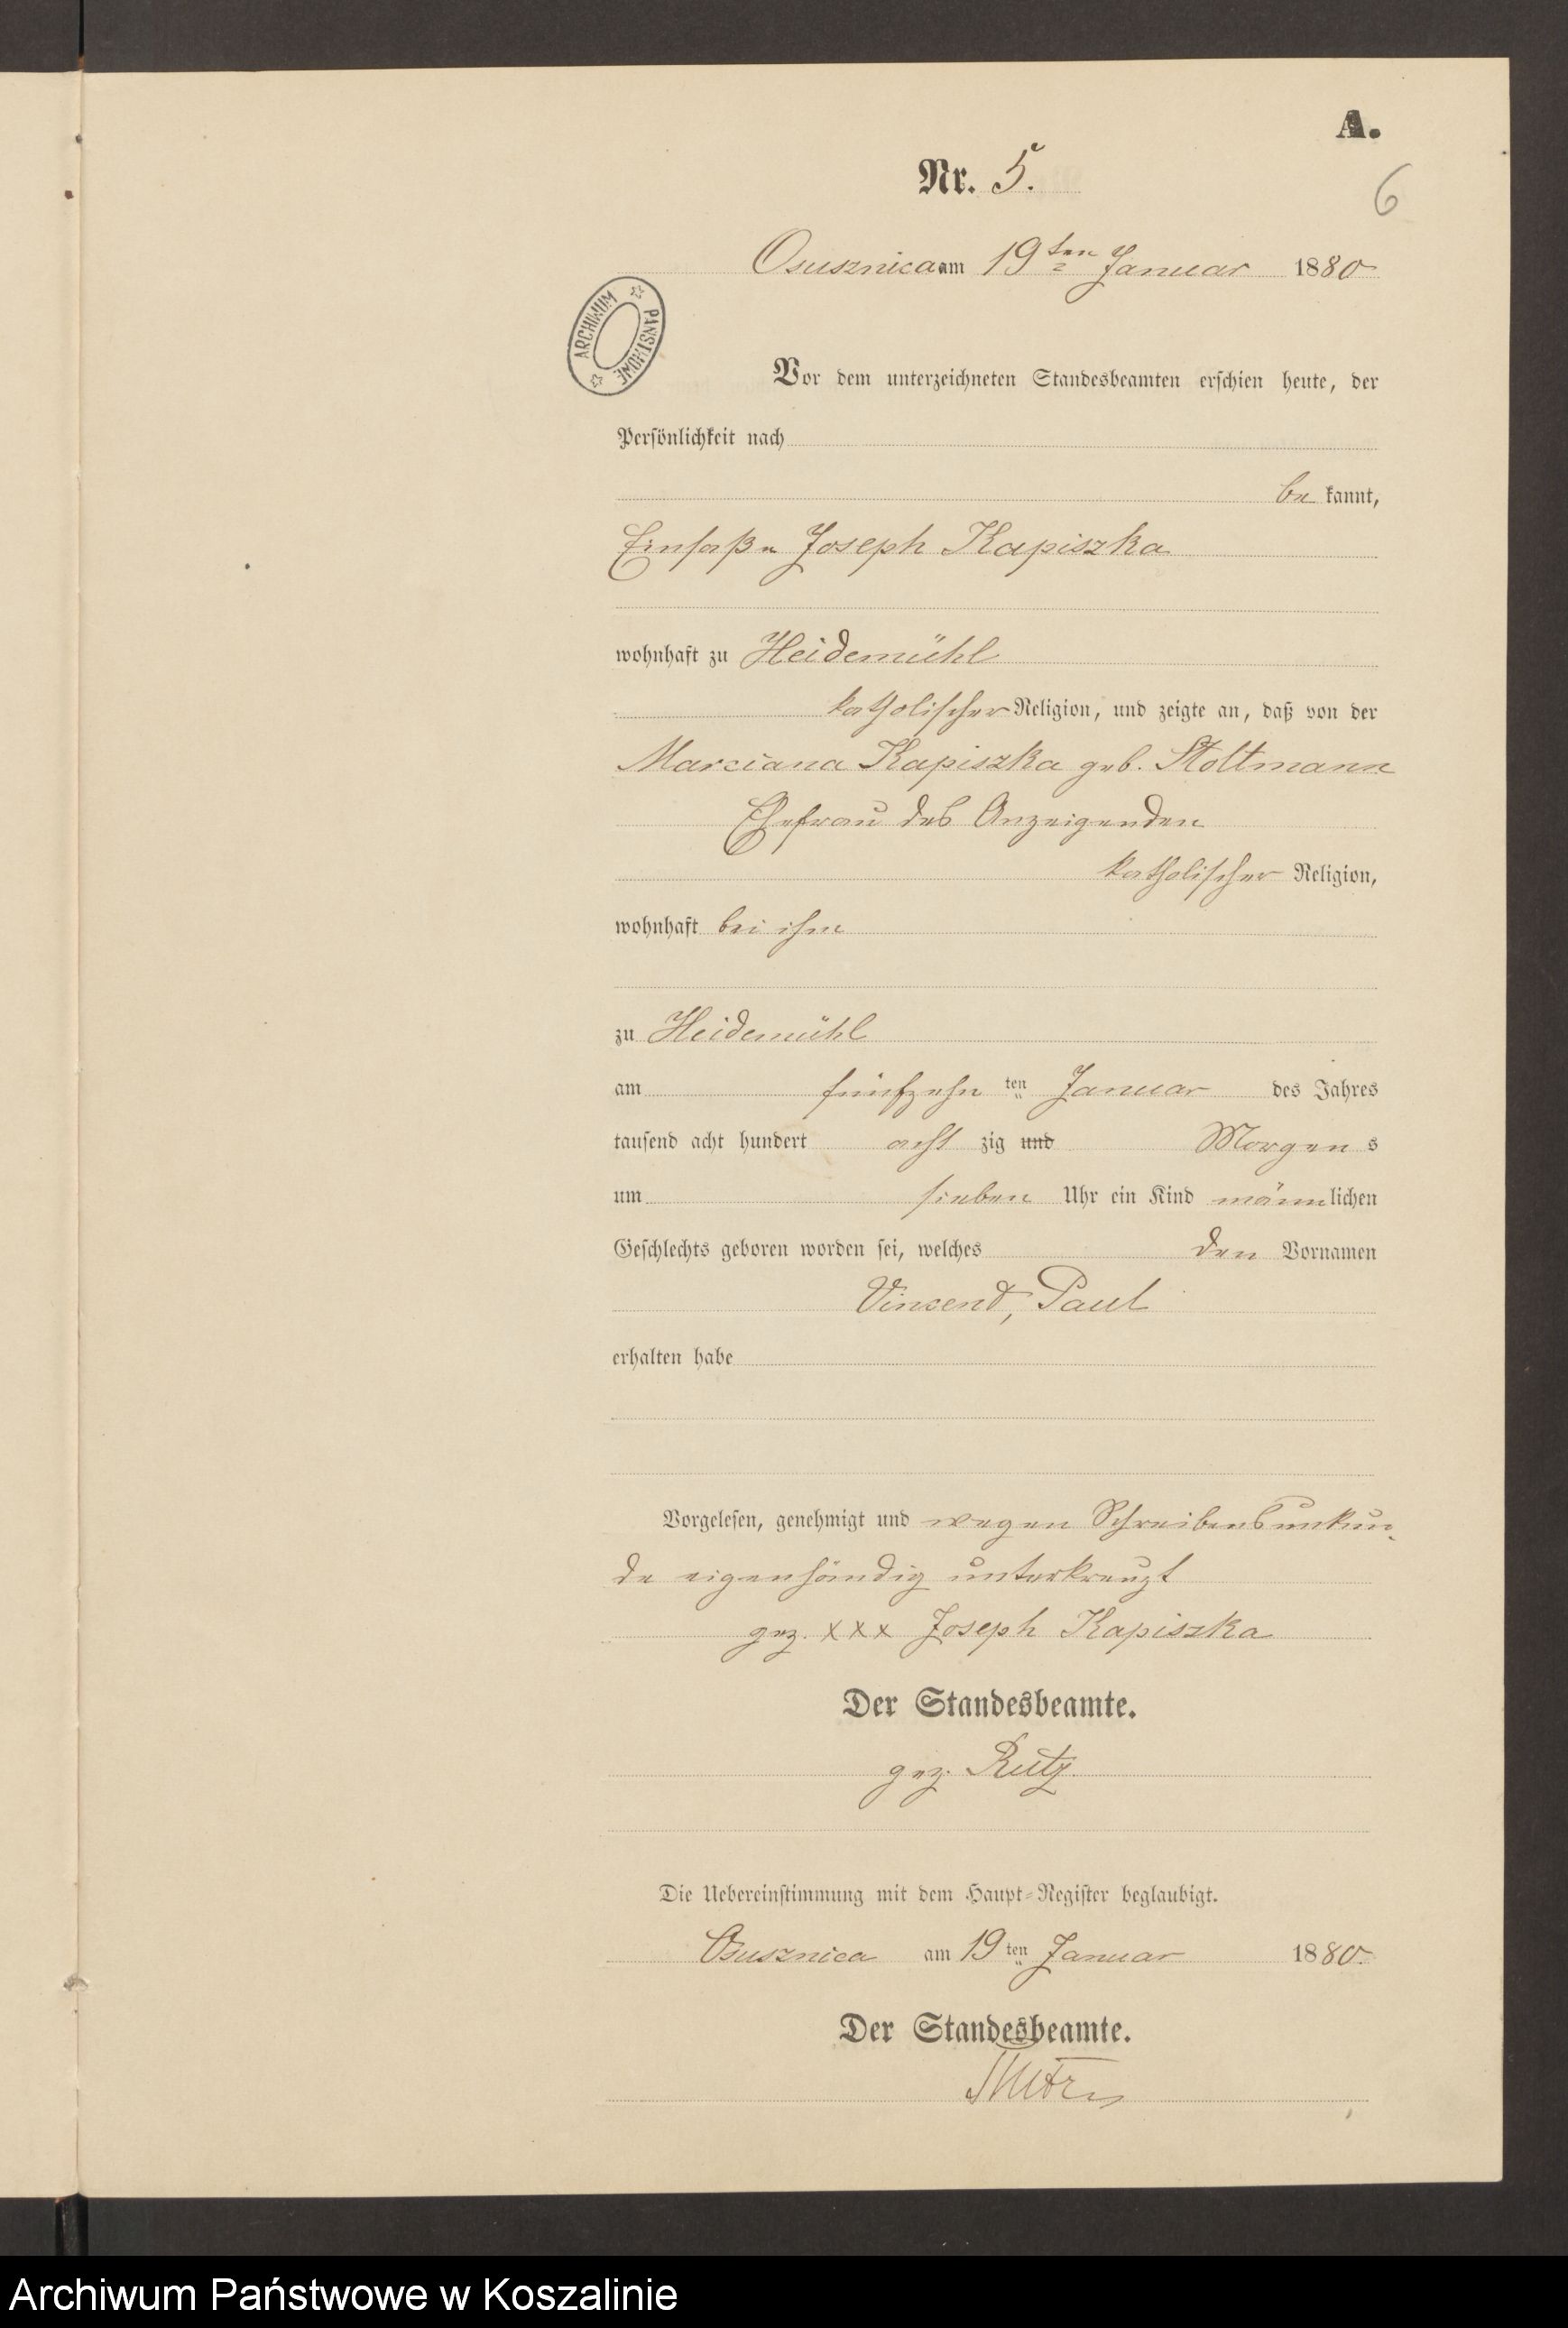 A.
Nr. 5.
6
Osusznica am 19ten Januar 1880
ARCHIWUM PAŃSTWOWE
Vor dem unterzeichneten Standesbeamten erschien heute, der
Persönlichkeit nach
be kannt,
Einsaße Joseph Kapiszka
wohnhaft zu Heidemühl
katholischer Religion, und zeigte an, daß von der
Marciana Kapiszka geb. Stoltmann
Ehefrau des Anzeigenden
katholischer Religion,
wohnhaft bei ihm
zu Heidemühl
am fünfzehn ten Januar des Jahres
tausend acht hundert acht zig und Morgen s
um sieben Uhr ein Kind männlichen
Geschlechts geboren worden sei, welches den Vornamen
Vincend, Paul
erhalten habe
Vorgelesen, genehmigt und wegen Schreibensunkun-
de eigenhändig unterkreuzt
gez. xxx Joseph Kapiszka
Der Standesbeamte.
gez. Rutz
Die Uebereinstimmung mit dem Haupt-Register beglaubigt.
Osusznica am 19ten Januar 1880.
Der Standesbeamte.
Archiwum Państwowe w Koszalinie